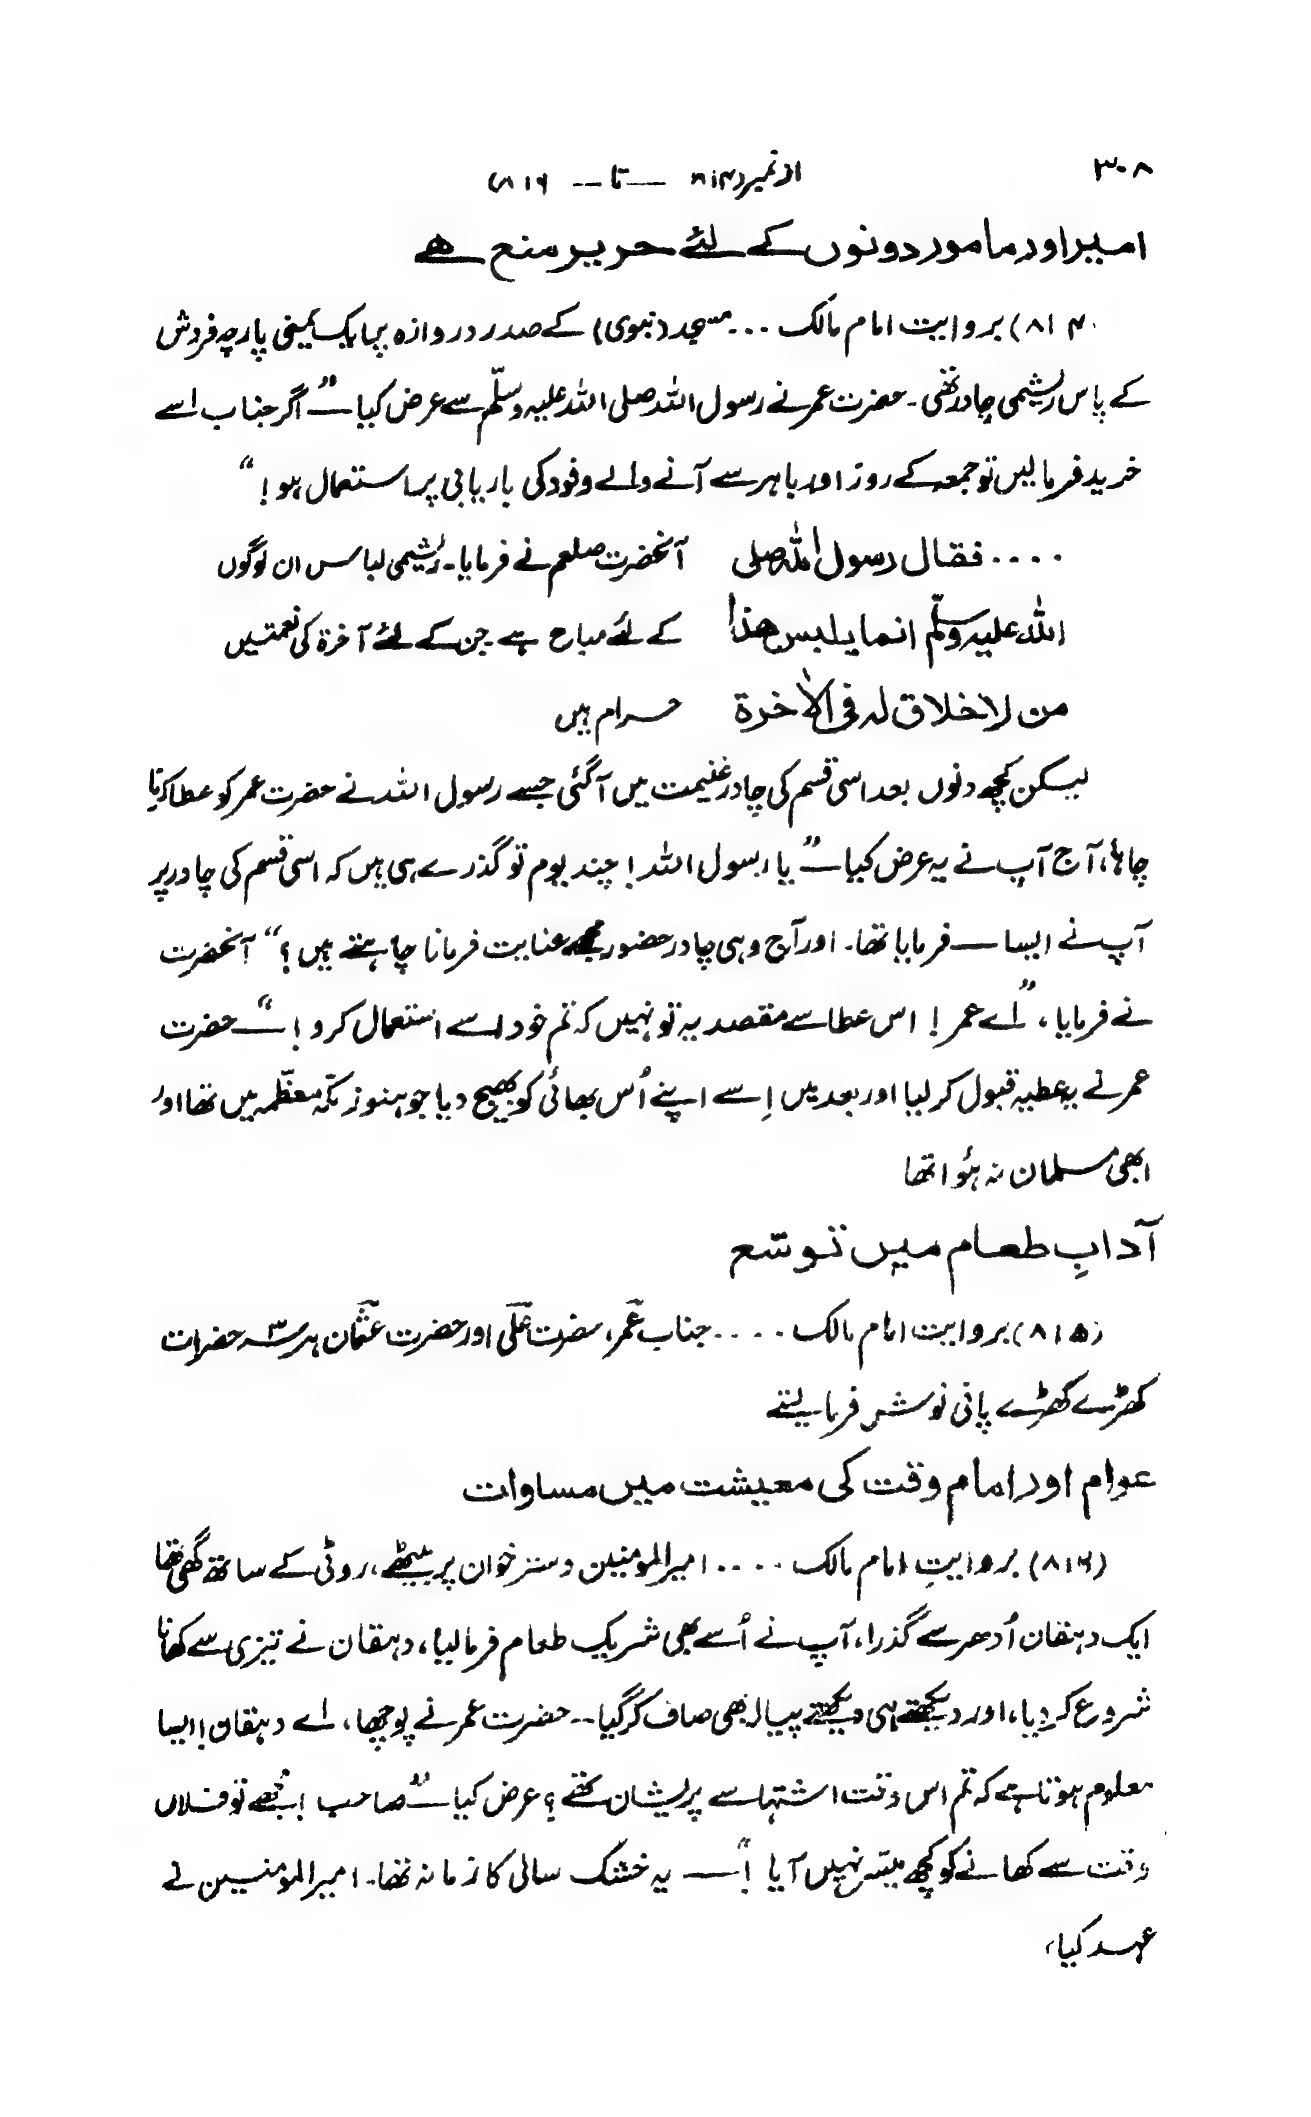 ۳۰۸
از نمبر (۸۱۴ — تا — ۸۱۶)
امیر اور مامور دونوں کے لئے حریر منع ہے
(۸۱۴) بروایت امام مالک ... مسجد (نبوی) کے صدر دروازہ پر ایک یمینی پارچہ فروش
کے پاس ریشیمی چادر تھی۔ حضرت عمر نے رسول اللہ صلی اللہ علیہ وسلّم سے عرض کیا — ”اگر جناب اسے
خرید فرمالیں تو جمعہ کے روز اور باہر سے آنے والے وفود کی باریابی پر استعمال ہو!“
.... فقال رسول اللہ صلی
اللہ علیہ وسلّم انما یلبس ھذا
من لا خلاق لہ فی الاٰخرۃ
آنحضرت صلعم نے فرمایا۔ ریشیمی لباس ان لوگوں
کے لئے مباح ہے جن کے لئے آخرۃ کی نعمتیں
حرام ہیں
لیکن کچھ دنوں بعد اسی قسم کی چادر غنیمت میں آگئی جسے رسول اللہ نے حضرت عمر کو عطا کرنا
چاہا، آج آپ نے یہ عرض کیا — ”یا رسول اللہ! چند یوم تو گذرے ہی ہیں کہ اسی قسم کی چادر پر
آپ نے ایسا — فرمایا تھا۔ اور آج وہی چادر حضور مجھے عنایت فرمانا چاہتے ہیں؟“ آنحضرت
نے فرمایا، ”اے عمر! اس عطا سے مقصد یہ تو نہیں کہ تم خود اسے استعمال کرو!“ — حضرت
عمر نے یہ عطیہ قبول کر لیا اور بعد میں اِسے اپنے اُس بھائی کو بھیج دیا جو ہنوز مکّہ معظّمہ میں تھا اور
ابھی مسلمان نہ ہُوا تھا
آدابِ طعام میں توسّع
(۸۱۵) بروایت امام مالک .... جناب عمر، حضرت علی اور حضرت عثمان ہر سہ حضرات
کھڑے کھڑے پانی نوش فرما لیتے
عوام اور امام وقت کی معیشت میں مساوات
(۸۱۶) بروایتِ امام مالک .... امیر المومنین دسترخوان پر بیٹھے، روٹی کے ساتھ گھی تھا
ایک دہقان اُدھر سے گذرا، آپ نے اُسے بھی شریک طعام فرمالیا، دہقان نے تیزی سے کھانا
شروع کر دیا، اور دیکھتے ہی دیکھتے پیالہ بھی صاف کر گیا۔۔ حضرت عمر نے پوچھا، اے دہقان! ایسا
معلوم ہوتا ہے کہ تم اس وقت اشتہا سے پریشان تھے؟ عرض کیا — ”صاحب! مجھے تو فلاں
وقت سے کھانے کو کچھ میسّر نہیں آیا!“ — یہ خشک سالی کا زمانہ تھا۔ امیر المومنین نے
عہد کیا،